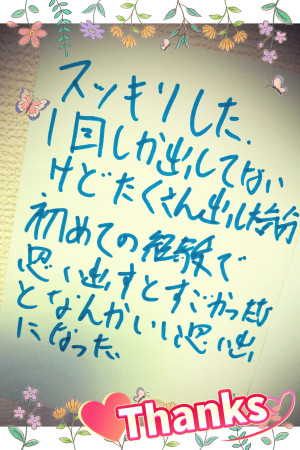 スッキリした.
1回しか出してない
けどたくさん出した
初めての経験で
思い出すとすごかったな
となんかいい思い出
になった、
Thanks